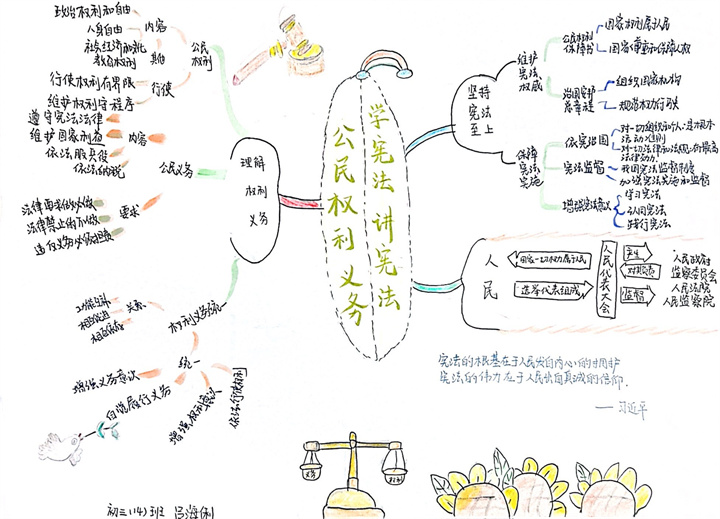 学宪法 讲宪法
公民权利 义务
理解
权利
义务
公民
权利
内容
政治权利和自由
人身自由
社会经济和文化
教育权利
其他
行使
行使权利有界限
维护权利守程序
公民义务
内容
遵守宪法法律
维护国家利益
依法服兵役
依法纳税
要求
法律要求的必做
法律禁止的不做
违反义务必须担责
权利义务统一
关系
统一
增强义务意识
自觉履行义务
增强权利意识
依法行使权利
坚持
宪法
至上
维护
宪法
权威
公民权利
保障书
国家权力属于人民
国家尊重和保障人权
治国安邦
总章程
组织国家机构
规范权力行使
保障
宪法
实施
依宪治国
对一切组织和个人是根本
活动准则
对一切法律和法规有最高
法律效力
宪法监督
我国宪法监督制度
加强宪法实施和监督
增强宪法意识
学习宪法
认同宪法
践行宪法
人
民
国家一切权力属于人民
选举代表组成
人民代表大会
产生
对其负责
监督
人民政府
监察委员会
人民法院
人民监察院
宪法的根基在于人民发自内心的拥护
宪法的伟力在于人民出自真诚的信仰.
——习近平
义务
权利
初三(14)班